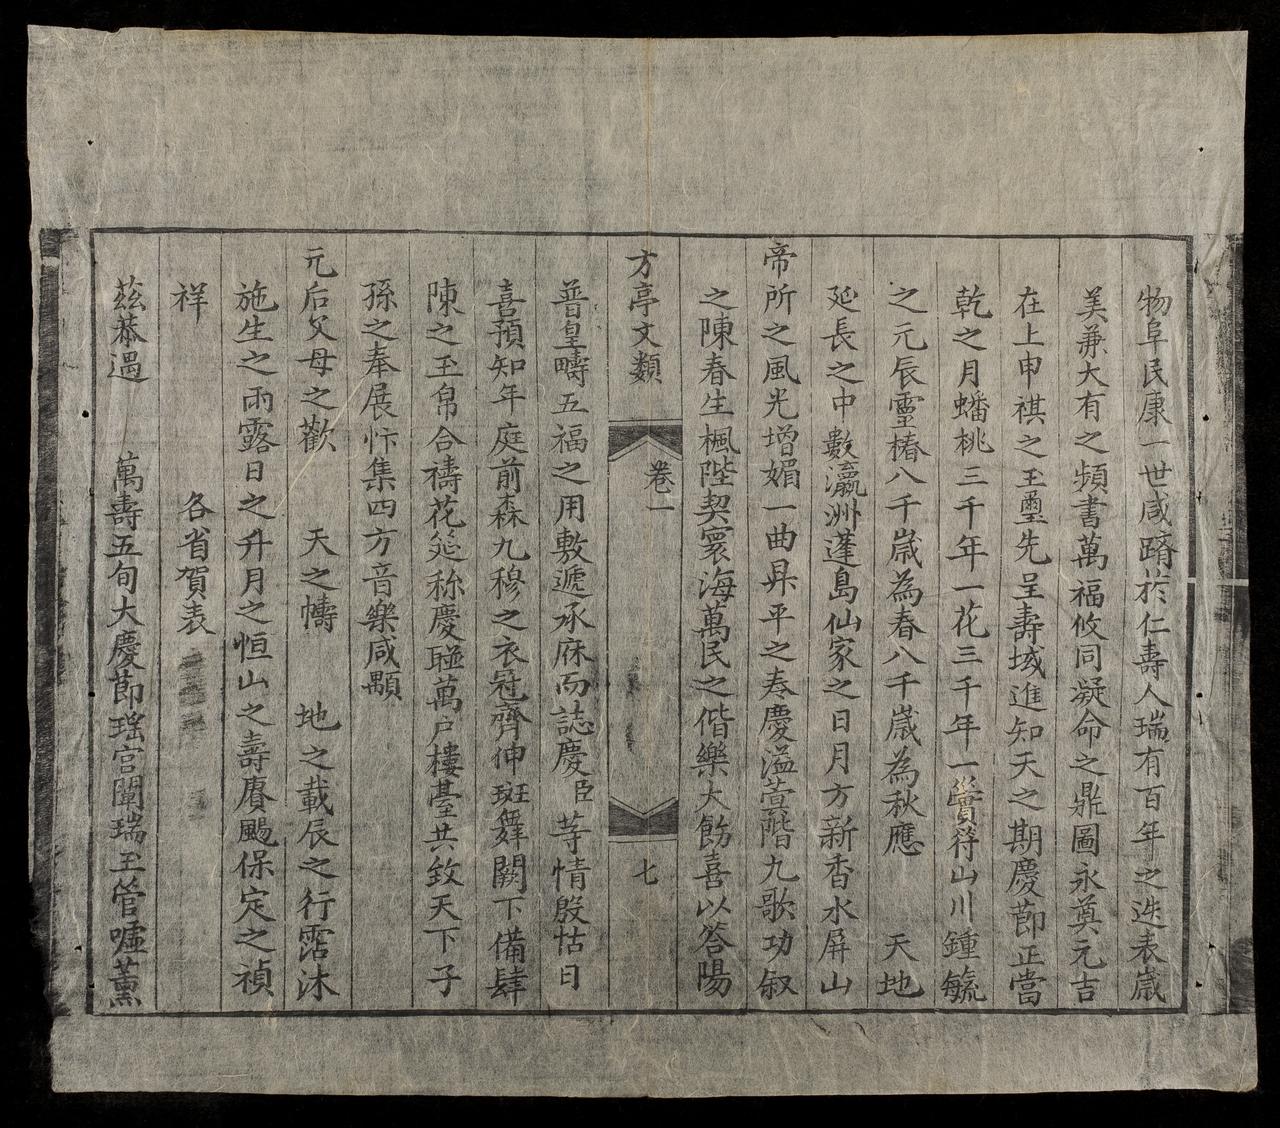 物阜民康一世咸躋於仁壽人瑞有百年之迭表歲
美兼大有之頻書萬福攸同凝命之鼎圖永奠元吉
在上申祺之玉璽先呈壽域進知天之期慶莭正當
乾之月蟠桃三千年一花三千年一實符山川鍾毓
之元辰靈椿八千歲為春八千歲為秋應 天地
延長之中數瀛洲蓬島仙家之日月方新香水屏山
帝所之風光增媚一曲昇平之奏慶溢萱階九歌功叙
之陳春生楓陛契寰海萬民之偕樂大飭喜以答陽
方亭文類 卷一 七
普皇疇五福之用敷遞承庥而誌慶臣等情殷怙日
喜預知年庭前森九穆之衣冠齊伸斑舞闕下備肆
陳之玉帛合禱花筵称慶聯萬户樓臺共效天下子
孫之奉展忭集四方音樂咸顒
元后父母之歡 天之幬 地之載辰之行霑沐
施生之雨露日之升月之恒山之壽賡颺保定之禎
祥 各省賀表
茲恭遇 萬壽五旬大慶莭瑶宫闡瑞玉管嘘薰